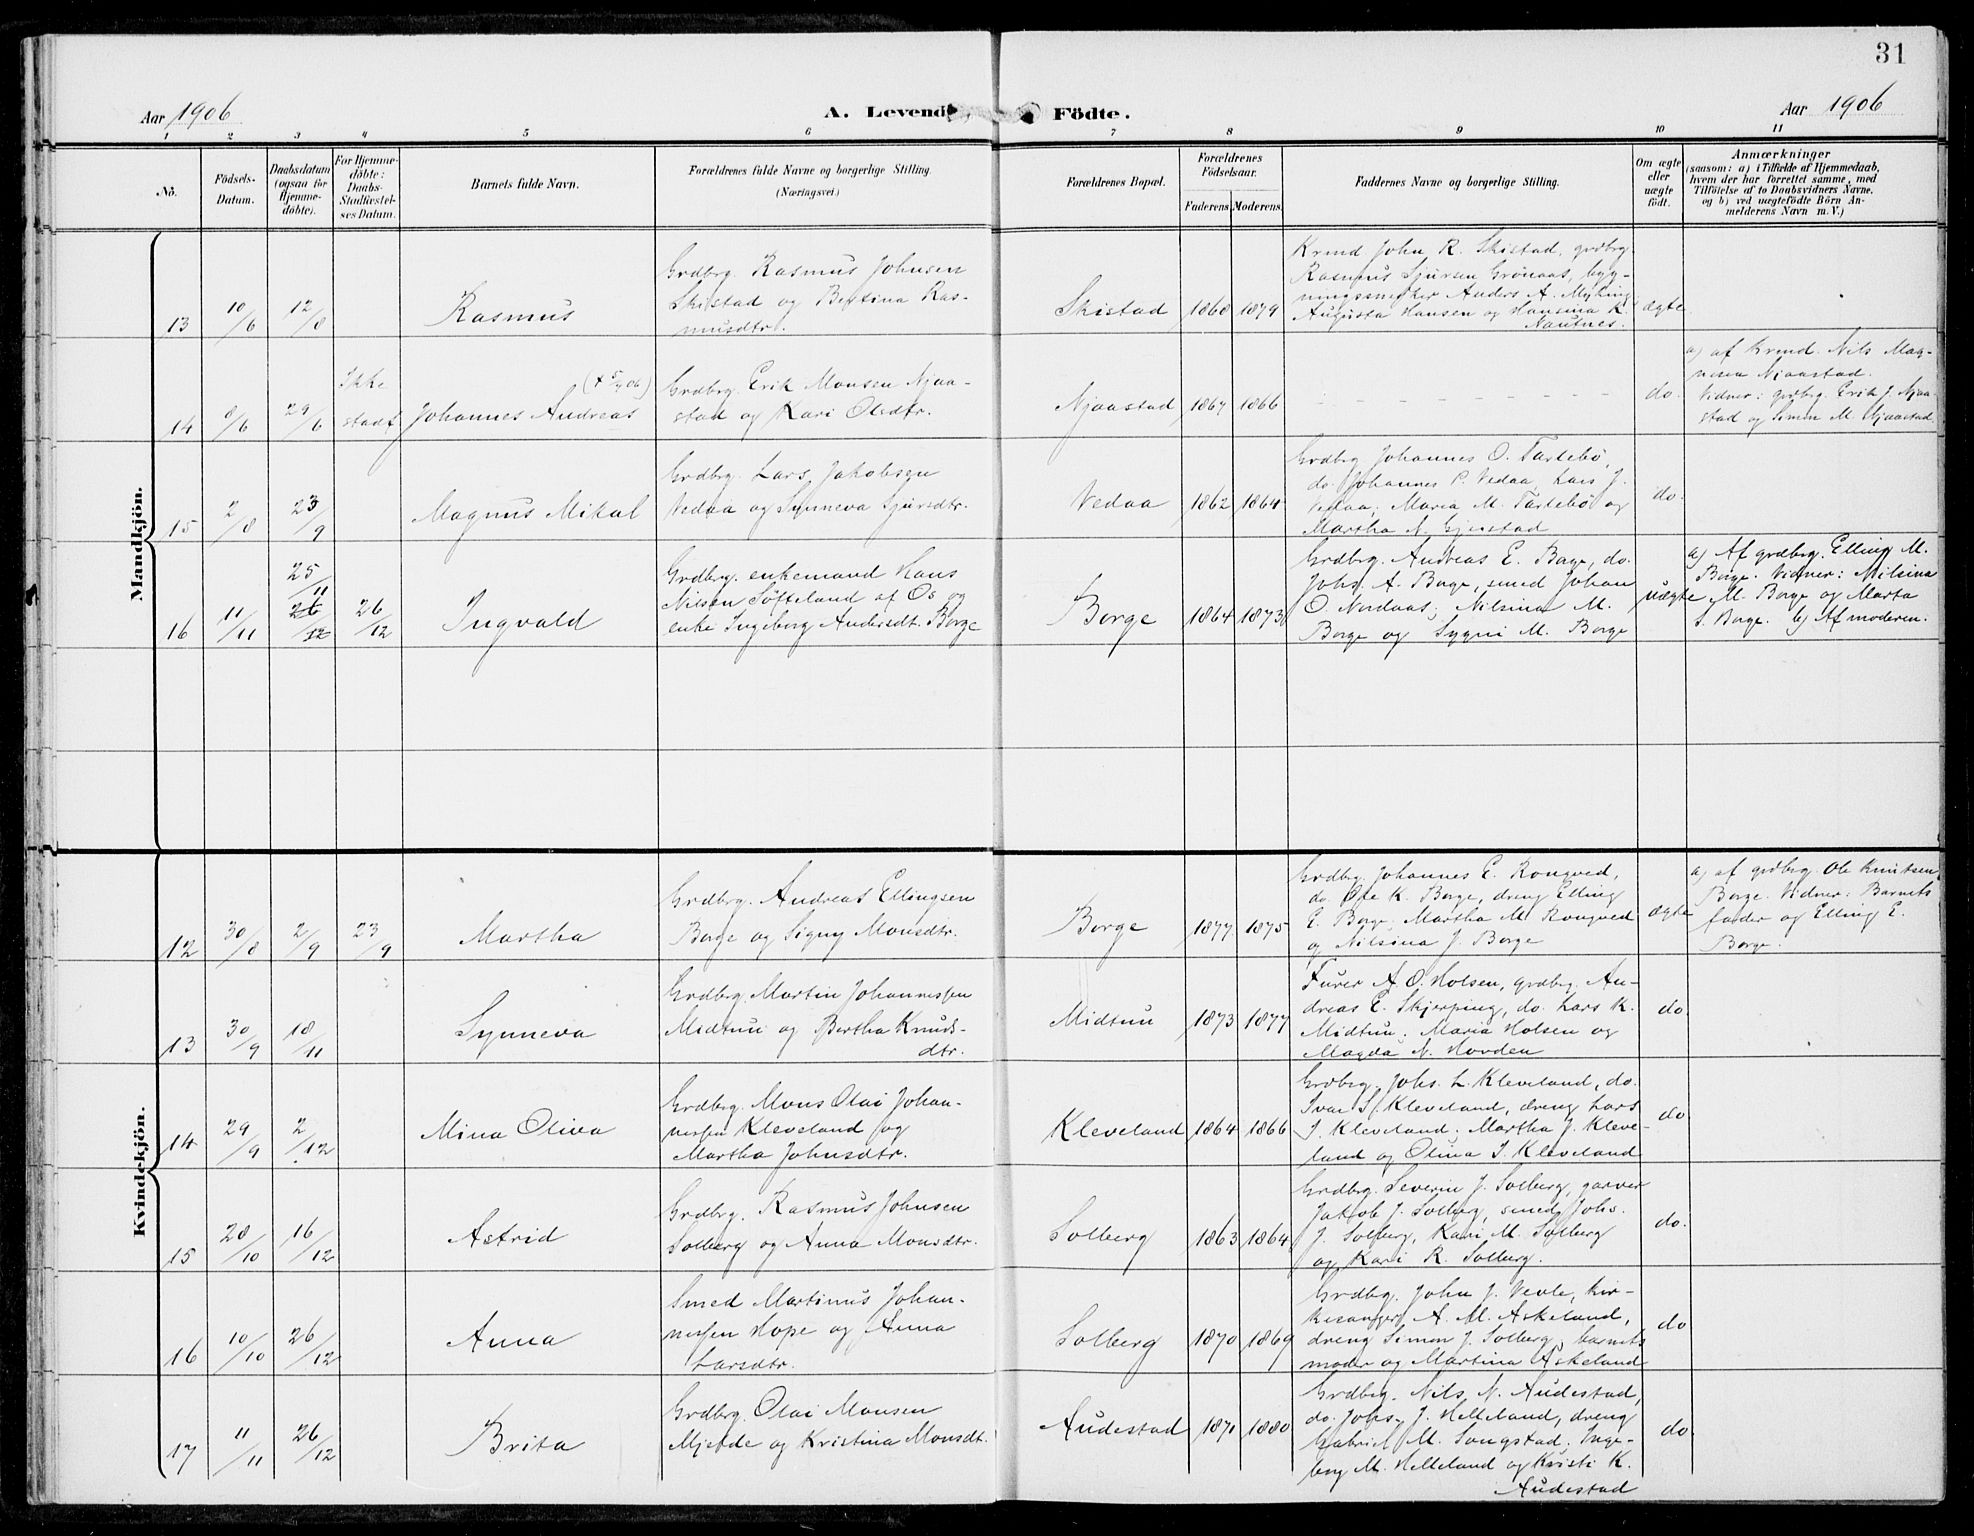 31
Aar 1906
A. Levende Födte.
Aar 1906
1 2 3 4 5 6 7 8 9 10 11
No.
Födsels-
Datum.
Daabsdatum
(ogsaa för
Hjemme-
döbte).
For Hjemme-
döbte:
Daabs-
Stadfæstel-
ses Datum.
Barnets fulde Navn.
Forældrenes fulde Navne og borgerlige Stilling.
(Næringsvei.)
Forældrenes Bopæl.
Forældrenes
Födselsaar.
Faderens. Moderens.
Faddernes Navne og borgerlige Stilling.
Om ægte
eller
uægte
födt.
Anmærkninger
(saasom: a) i Tilfælde af Hjemmedaab,
hvem der har forrettet samme, med
Tilföielse af to Daabsvidners Navne,
og b) ved uægtefödte Börn An-
melderens Navn m. V.)
Mandkjön.
13
10/6
12/8
Rasmus
Grdbrg. Rasmus Johnsen
Skistad og Bertina Ras-
musdtr.
Skistad
1868
1879
Krmd John R. Skistad, grdbrg.
Rasmus Sjursen Grönaas, byg-
ningssnedker Anders A. Myking
Augusta Hansen og Hansina K.
Nautnes.
ægte
14
8/6
29/6
Ikke
stadf
(† 5/9 06)
Johannes Andreas
Grdbrg. Erik Monsen Njaa-
stad og Kari Olsdtr.
Njaastad
1867
1866
do.
a) af Krmd. Nils Mag-
nesen Njaastad.
Vidner: grdbrg. Erik J. Njaa-
stad og Simon M. Njaastad.
15
2/8
23/9
Magnus Mikal
Grdbrg. Lars Jakobsen
Vedaa og Synneva Sjursdtr.
Vedaa
1862
1864
Grdbrg Johannes O. Tartebö,
do. Johannes P. Vedaa, Lars J.
Vedaa; Maria M. Tartebö og
Martha N. Gjerstad
do.
16
11/11
25/11
26/12
26/12
Ingvald
Grdbrg. enkemand Hans
Nilsen Söfteland af Os og
enke Ingeborg Andersdt. Borge
Borge
1864
1873
Grdbrg. Andreas E. Borge, do.
Johs. A. Borge, smed Johan
O. Nordaas; Nilsina M.
Borge og Sygni M. Borge
uægte
a) Af grdbrg. Elling M.
Borge. Vidner: Milsina
M. Borge og Marta
S. Borge. b) Af moderen.
Kvindekjön.
12
30/8
2/9
23/9
Martha
Grdbrg. Andreas Ellingsen
Borge og Signy Monsdtr.
Borge
1877
1875
Grdbrg. Johannes E. Rongved,
do. Ole K. Borge, dreng Elling
E. Borge; Martha M. Rongved
og Nilsina J. Borge
ægte
a) af grdbrg. Ole Knutsen
Borge. Vidner: Barnets
fader og Elling E.
Borge.
13
30/9
18/11
Synneva
Grdbrg. Martin Johannessen
Midtun og Bertha Knuds-
dtr.
Midtun
1873
1877
Furer A. O. Holsen, grdbrg. An-
dreas E. Skjerping, do. Lars K.
Midtun; Maria Holsen og
Magda N. Hovden
do.
14
29/9
2/12
Mina Oliva
Grdbrg. Mons Olai Johan-
nessen Kleveland og
Martha Johnsdtr.
Kleveland
1864
1866
Grdbrg. Johs. L. Kleveland, do.
Ivar S. Kleveland, dreng Lars
J. Kleveland; Martha J. Kleve-
land og Olina I. Kleveland
do
15
28/10
16/12
Astrid
Grdbrg. Rasmus Johnsen
Solberg og Anna Monsdtr.
Solberg
1863
1864
Grdbrg. Severin J. Solberg, garver
Jakob J. Solberg, smed Johs.
J. Solberg, Kari M. Solberg
og Kari R. Solberg.
do.
16
10/10
26/12
Anna
Smed Martinus Johan-
nessen Hope og Anna
Larsdtr.
Solberg
1870
1869
Grdbrg. John J. Veole, kir-
kesanger A. M. Askeland,
dreng Simon J. Solberg, barnets
moder og Martina Askeland
do
17
11/11
26/12
Brita
Grdbrg. Olai Monsen
Mjelde og Kristina Monsdt.
Audestad
1871
1880
Grdbrg. Nils N. Audestad,
do. Johs. J. Helleland, dreng
Gabriel M. Songstad; Inge-
borg M. Helleland og Kristi K.
Audestad
do